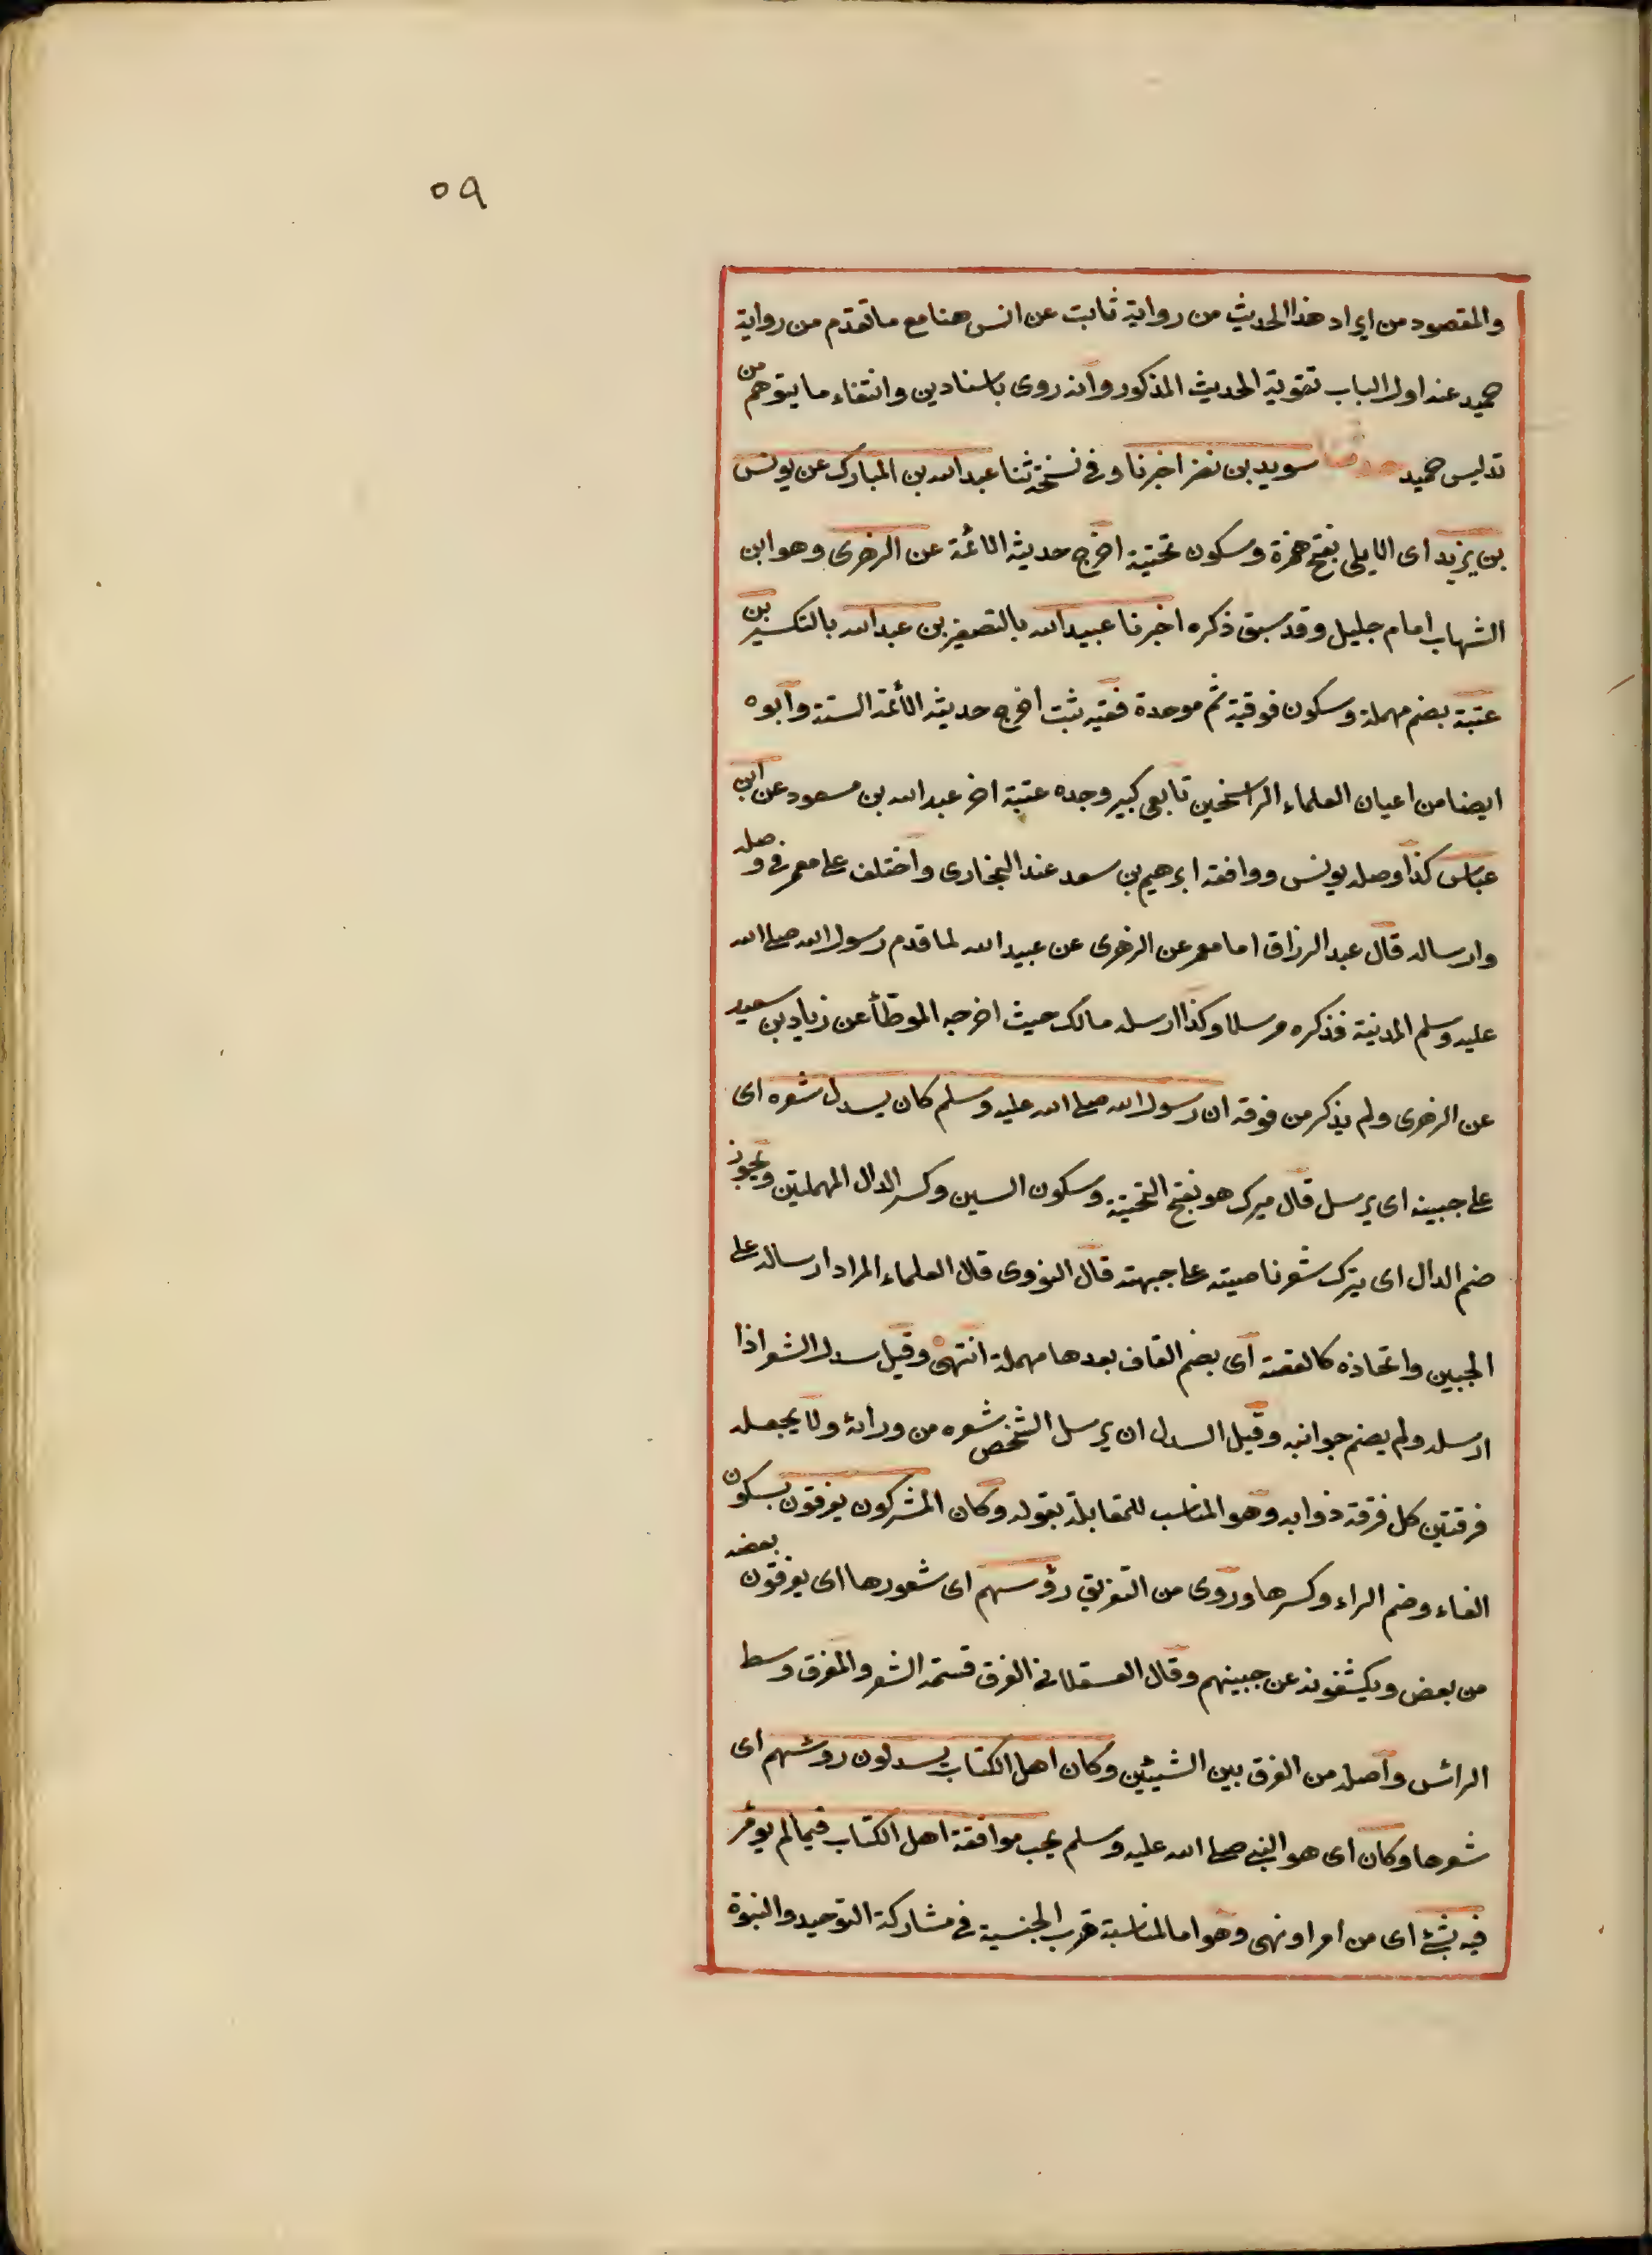 ٥٩
والمقصود من ايراد هذا الحديث من رواية ثابت عن انس هنا مع ما تقدم من رواية
حميد عند اول الباب تقوية الحديث المذكور وانه روى باسنادين وانتفاء ما يتوهم من
تدليس حميد حدثنا سويد بن نصر اخبرنا وفى نسخة ثنا عبد الله بن المبارك عن يونس
بن يزيد اى الايلى بفتح همزة وسكون تحتية اخرج حديثه الائمة عن الزهرى وهو ابن
الشهاب امام جليل وقد سبق ذكره اخبرنا عبيد الله بالتصغير بن عبد الله بالتكسير بن
عتبة بضم مهملة وسكون فوقية ثم موحدة فقيه ثبت اخرج حديثه الائمة الستة وابوه
ايضا من اعيان العلماء الراسخين تابعى كبير وجده عتبة اخر عبد الله بن مسعود عن ابن
عباس كذا وصله يونس ووافقه ابرهيم بن سعد عند البخارى واختلف على معمر فى وصله
وارساله قال عبد الرزاق اما معمر عن الزهرى عن عبيد الله لما قدم رسول الله صلى الله
عليه وسلم المدينة فذكره مرسلا وكذا ارسله مالك حيث اخرجه الموطّأ عن زياد بن سعيد
عن الزهرى ولم يذكر من فوقه ان رسول الله صلى الله عليه وسلم كان يسدل شعره اى
على جبينه اى يرسل قال ميرك هو بفتح التحتية وسكون السين وكسر الدال المهملتين ويجوز
ضم الدال اى يترك شعر ناصيته على جبهته قال النووى قال العلماء المراد ارساله على
الجبين واتخاذه كالقصة اى بضم القاف بعدها مهملة انتهى وقيل سدل الشعر اذا
ارسله ولم يضم جوانبه وقيل السدل ان يرسل الشخص شعره من ورائه ولا يجعله
فرقتين كل فرقة ذوابه وهو المناسب للمقابلة بقوله وكان المشركون يفرقون بسكون
الفاء وضم الراء وكسرها وروى من التفريق رؤسهم اى شعورها اى يفرقون بعضه
من بعض ويكشفونه عن جبينهم وقال العسقلانى الفرق قسمة الشعر والمفرق وسط
الرائس واصله من الفرق بين الشيئين وكان اهل الكتاب يسدلون روسهم اى
شعرها وكان اى هو النبى صلى الله عليه وسلم يحب موافقة اهل الكتاب فيما لم يومر
فيه بشئ اى من امر او نهى وهو اما لمناسبة قرب الجنسية فى مشاركة التوحيد والنبوة